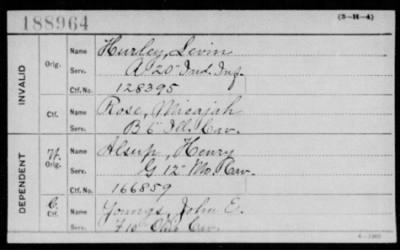 188964
(3-H-4)
INVALID
Orig.
Name Hurley, Levin
Serv. A 20" Ind. Inf.
Ctf. No. 128395
Ctf. Name Rose, Micajah
Serv. B 6 Ill. Cav.
DEPENDENT
W. Orig.
Name Alsup, Henry
Serv. G 12" Mo. Cav.
Ctf. No. 166859
C. Ctf. Name Youngs, John E.
Serv. F 10" Ohio Cav.